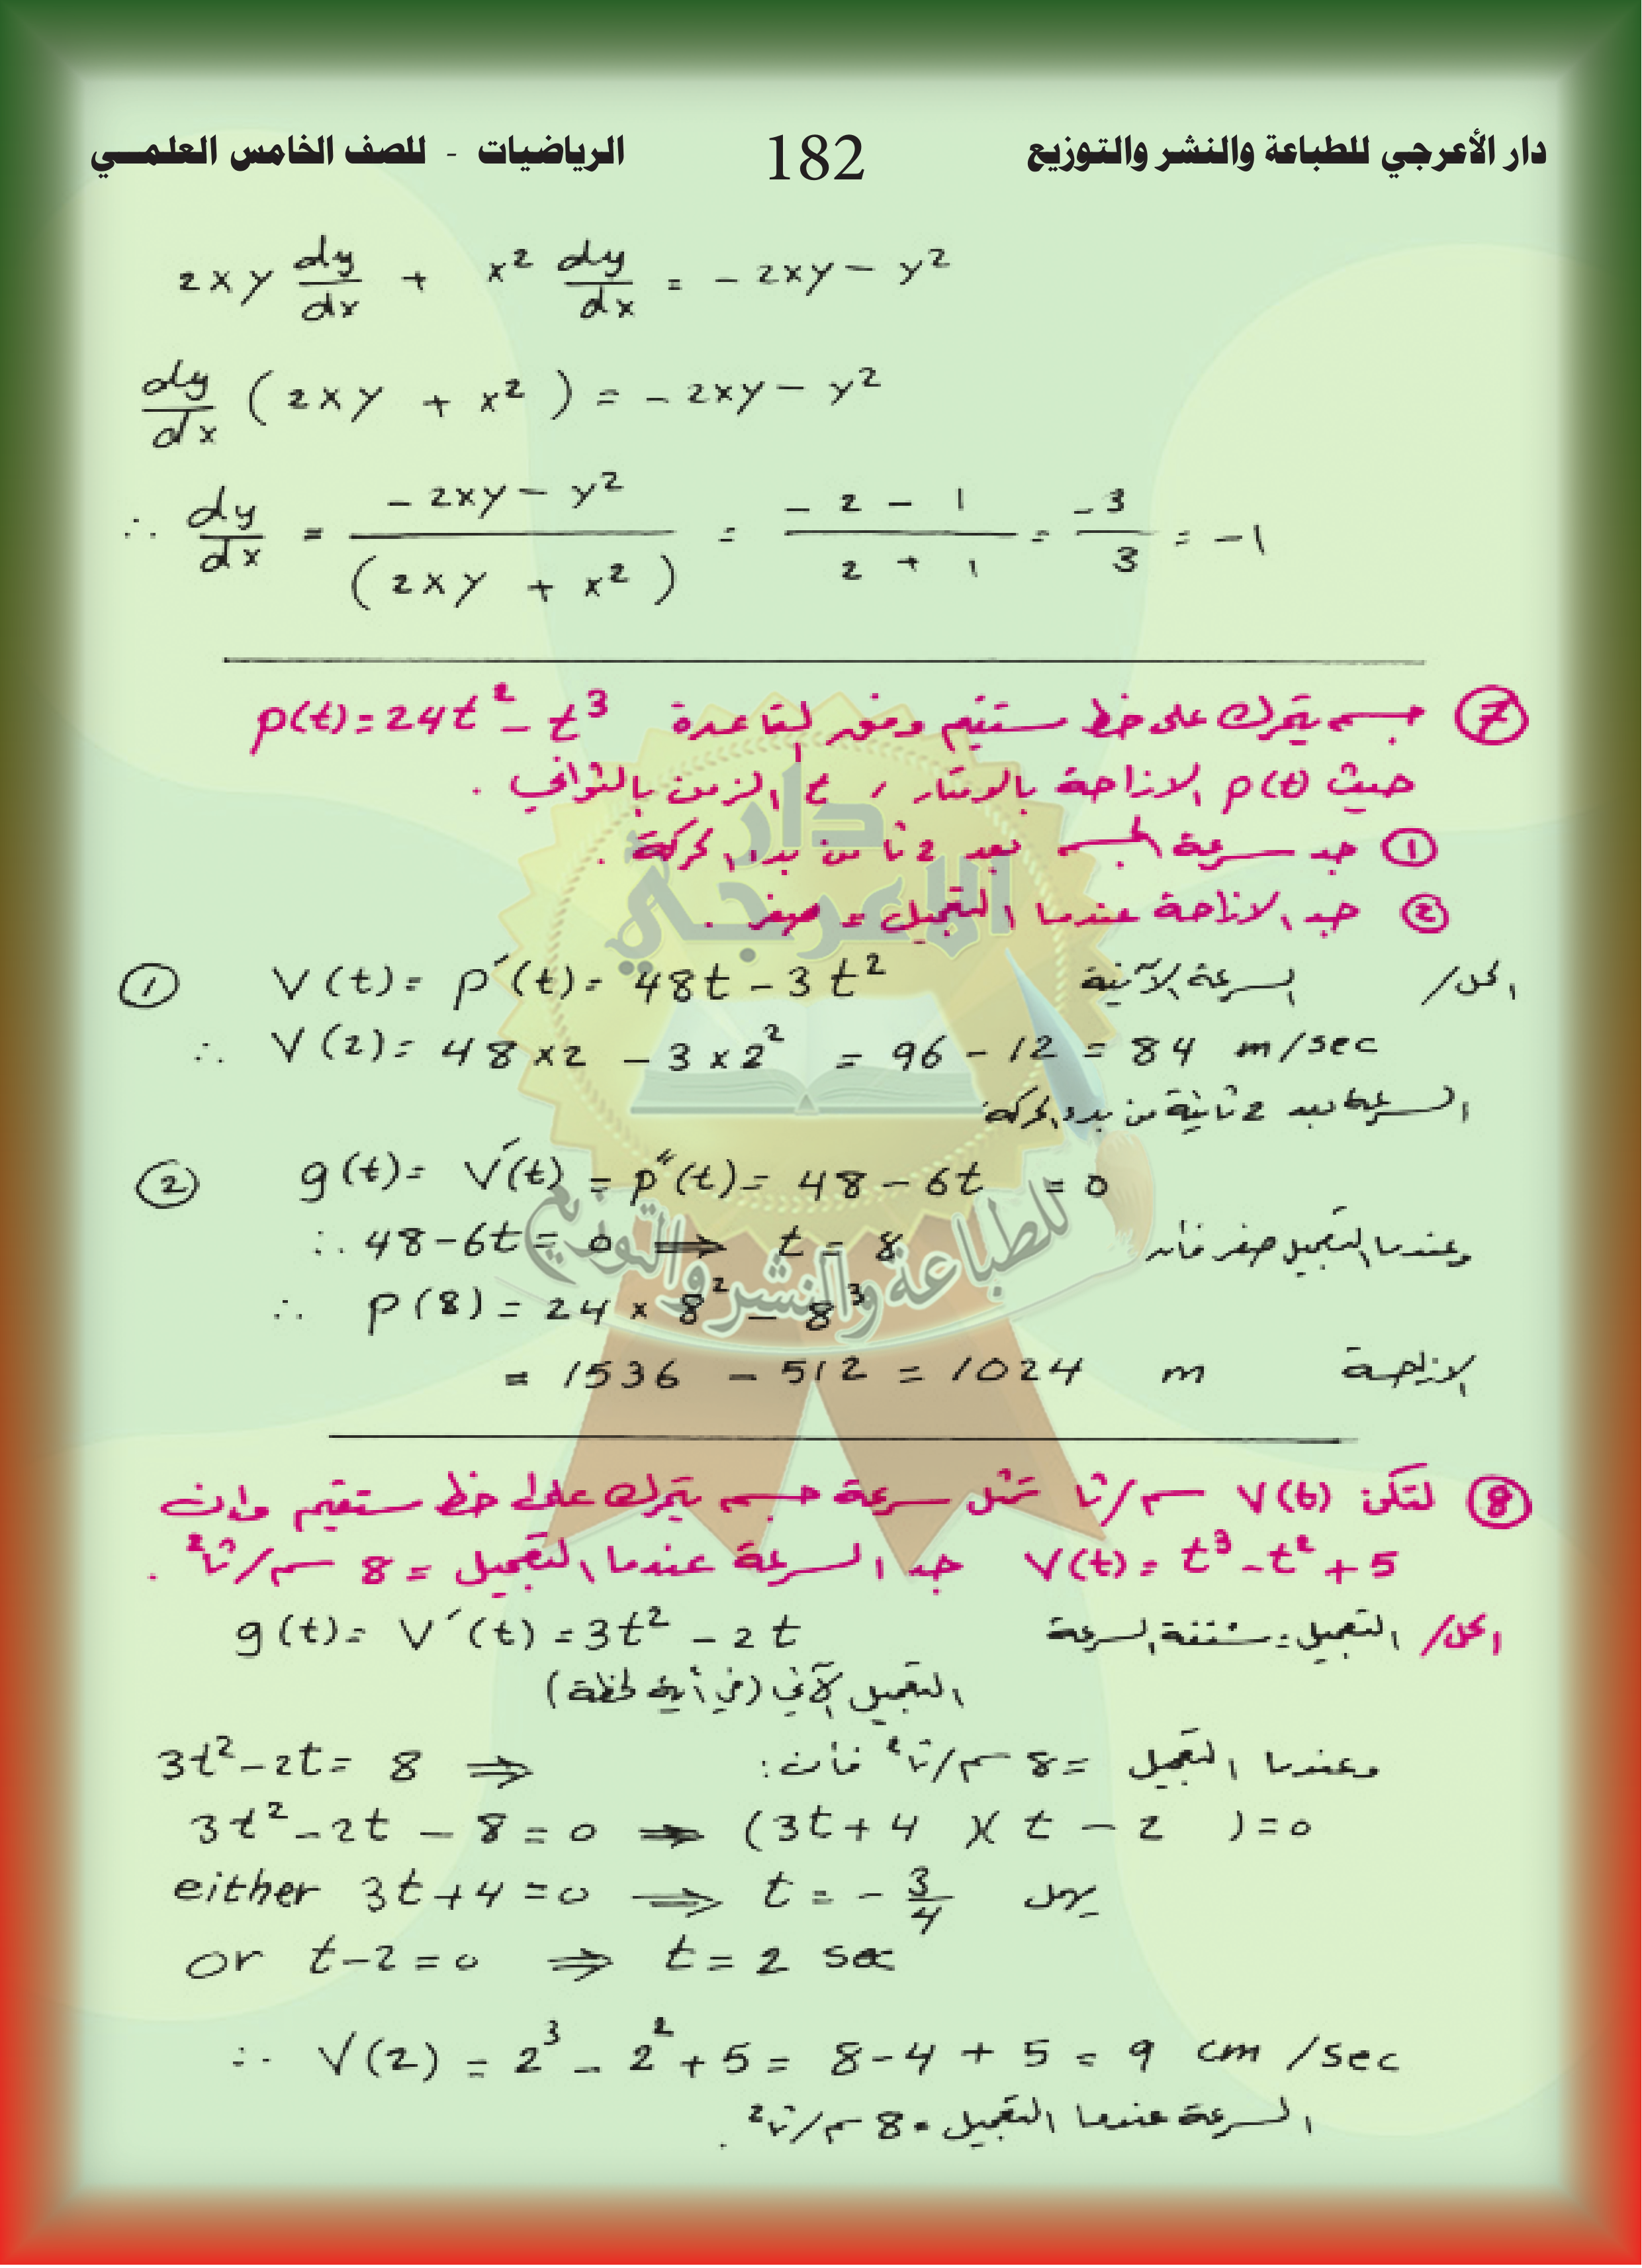 دار الأعرجي للطباعة والنشر والتوزيع 182 الرياضيات - للصف الخامس العلمـــي
2xy dy/dx + x² dy/dx = - 2xy - y²
dy/dx (2xy + x²) = - 2xy - y²
∴ dy/dx = (- 2xy - y²)/(2xy + x²) = (- 2 - 1)/(2 + 1) = -3/3 = -1
⑦ جسم يتحرك على خط مستقيم وفق القاعدة p(t) = 24t² - t³
حيث p(t) الازاحة بالامتار ، t الزمن بالثواني .
① جد سرعة الجسم بعد 2 ثا من بدء الحركة .
② جد الازاحة عندما التعجيل = صفر .
الحل/ السرعة الآنية ① V(t) = p′(t) = 48t - 3t²
∴ V(2) = 48×2 - 3×2² = 96 - 12 = 84 m/sec
السرعة بعد 2 ثانية من بدء الحركة
② g(t) = V′(t) = p″(t) = 48 - 6t = 0
وعندما التعجيل صفر فأن ∴ 48-6t = 0 ⟹ t = 8
∴ p(8) = 24 × 8² - 8³
= 1536 - 512 = 1024 m الازاحة
⑧ لتكن V(t) سم/ثا تمثل سرعة جسم يتحرك على خط مستقيم وان
V(t) = t³ - t² + 5 جد السرعة عندما التعجيل = 8 سم/ثا² .
الحل/ التعجيل = مشتقة السرعة g(t) = V′(t) = 3t² - 2t
التعجيل الآني (في أية لحظة)
وعندما التعجيل = 8 سم/ثا² فأن : 3t² - 2t = 8 ⟹
3t² - 2t - 8 = 0 ⟹ (3t + 4)(t - 2) = 0
either 3t + 4 = 0 ⟹ t = - 3/4 يهمل
or t - 2 = 0 ⟹ t = 2 sec
∴ V(2) = 2³ - 2² + 5 = 8 - 4 + 5 = 9 cm/sec
السرعة عندما التعجيل = 8 سم/ثا² .
دار
الاعرجي
للطباعة والنشر والتوزيع